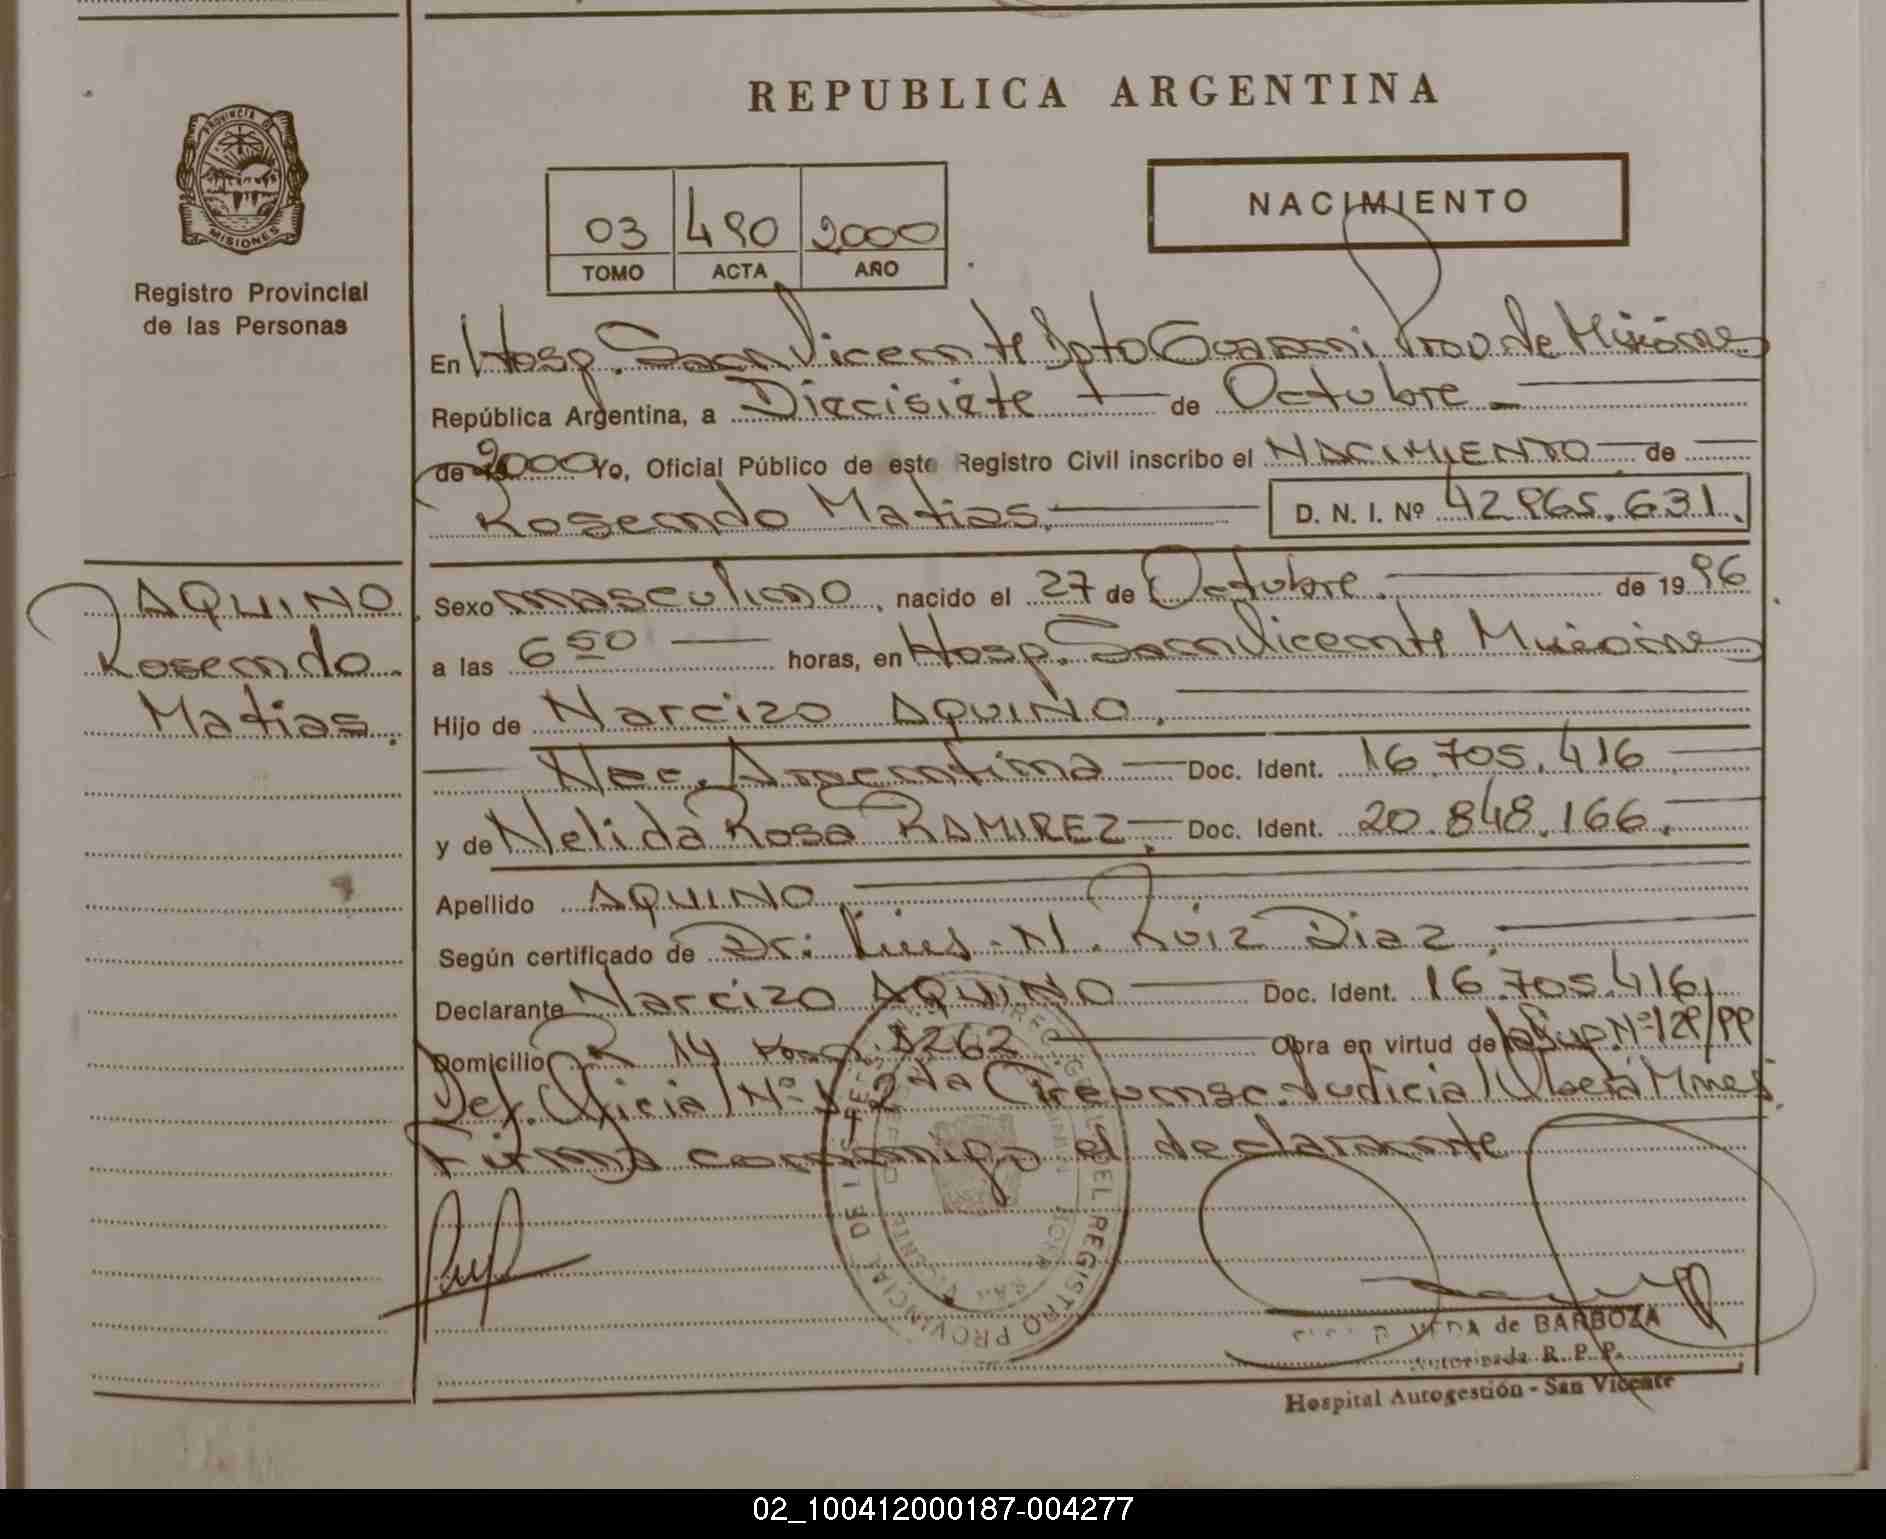 REPUBLICA ARGENTINA
PROVINCIA DE
MISIONES
Registro Provincial
de las Personas
NACIMIENTO
03 490 2000
TOMO ACTA AÑO
En Hosp. San Vicente Dpto Guarani Prov de Misiones
República Argentina, a Diecisiete de Octubre
de 2000 Yo, Oficial Público de este Registro Civil inscribo el NACIMIENTO de
Rosendo Matias. D. N. I. Nº 42.965.631.
AQUINO
Rosendo
Matias.
Sexo masculino, nacido el 27 de Octubre. de 19 96
a las 6 50 horas, en Hosp. San Vicente Misiones
Hijo de Narcizo AQUINO.
Nac. Argentina Doc. Ident. 16.705.416
y de Nelida Rosa RAMIREZ. Doc. Ident. 20.848.166.
Apellido AQUINO
Según certificado de Dr: Luis N. Ruiz Diaz.
Declarante Narcizo AQUINO Doc. Ident. 16.705.416
Domicilio R 14 1262 Obra en virtud de Nº 129/99
Def. Oficial Nº 2da Circunsc. Judicial Oberá Mnes.
Firma conmigo el declarante
DEL REGISTRO PROVINCIAL DE
de BARBOZA
Autorizada R. P. P.
Hospital Autogestión - San Vicente
02_100412000187-004277